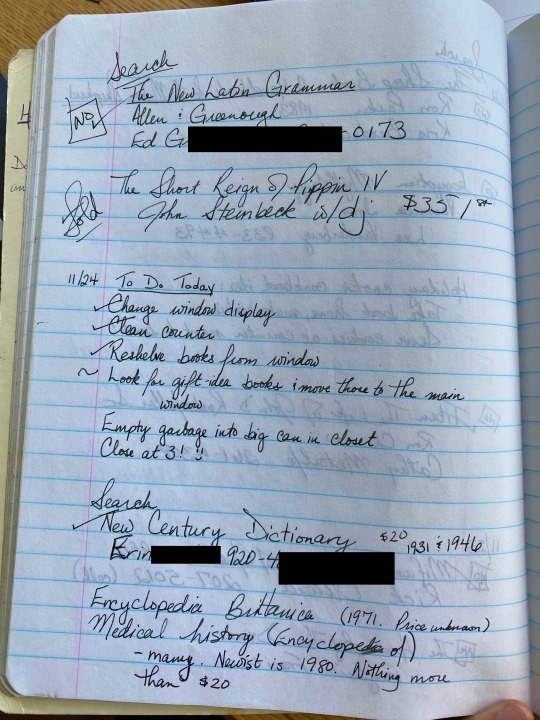 Search
The New Latin Grammar
NO
Allen & Greenough
Ed G -0173
The Short Reign of Pippin IV
Sold
John Steinbeck w/dj $35 1st
11/24 To Do Today
✓ Change window display
✓ Clean counter
✓ Reshelve books from window
~ Look for gift-idea books & move those to the main
window
Empty garbage into big can in closet
Close at 3! !!
Search
✓ New Century Dictionary $20 1931 & 1946
Erin 920-4
Encyclopedia Brittanica (1971. Price unknown)
Medical history (Encyclopedia of)
- many. Newist is 1980. Nothing more
than $20